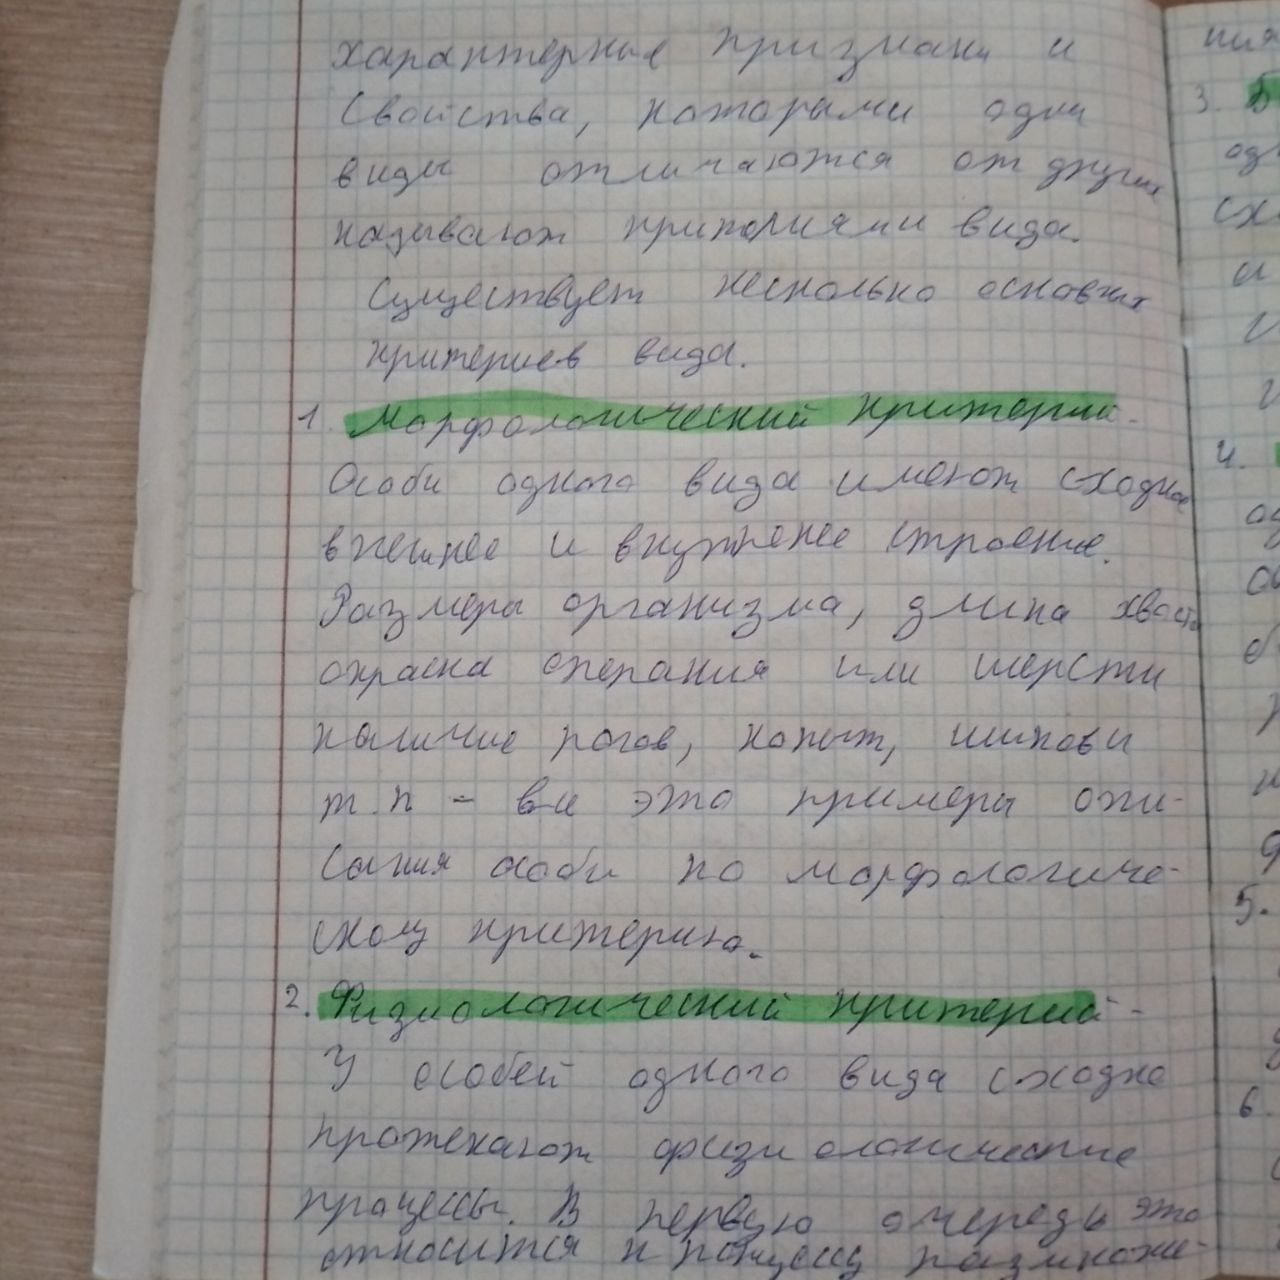 характерные признаки и
свойства, которыми одни
виды отличаются от других
называют криториями вида.
Существует несколько основных
критериев вида.
1. Морфологический критерий -
Особи одного вида имеют сходное
внешнее и внутренее строение.
Размеры организма, длина хвоста
окраска операния или шерсти
наличие рогов, копыт, шипов и
т.п - все это примеры опи-
сания особи по морфологиче-
скому критерию.
2. Физиологический критерий -
У особей одного вида сходно
протекают физиологические
процессы. В первую очередь это
относится к процессу размноже-
ния
3.
4.
5.
6.